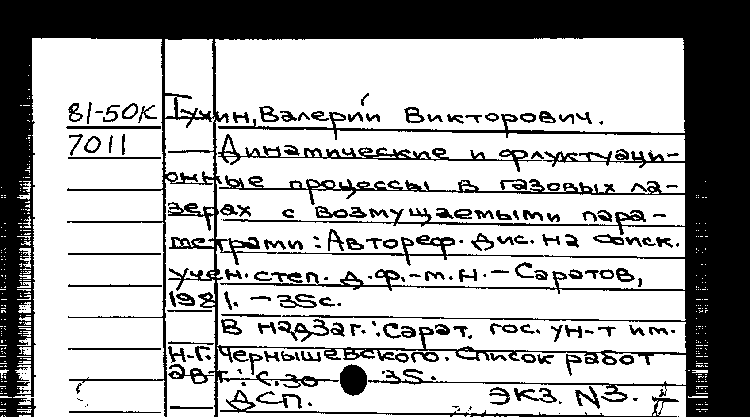 81-50К Тухин, Валерий Викторович.
7011 — Динамические и флуктуаци-
онные процессы в газовых ла-
зерах с возмущаемыми пара-
метрами: Автореф. дис. на соиск.
учен. степ. д.ф.-м.н. — Саратов,
1981. — 35с.
В надзаг.: Сарат. гос. ун-т им.
Н.Г. Чернышевского. Список работ
авт.: с.30 35.
ДСП. ЭКЗ. N3.